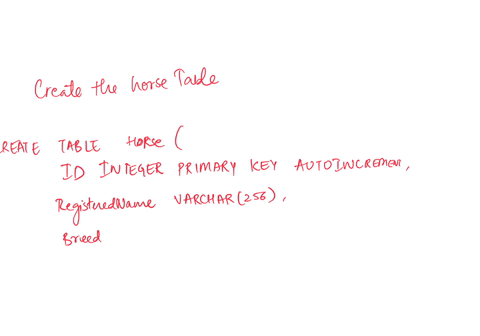 Create the horse Table
CREATE TABLE HORSE (
ID INTEGER PRIMARY KEY AUTOINCREMENT,
RegisteredName VARCHAR(256),
Breed